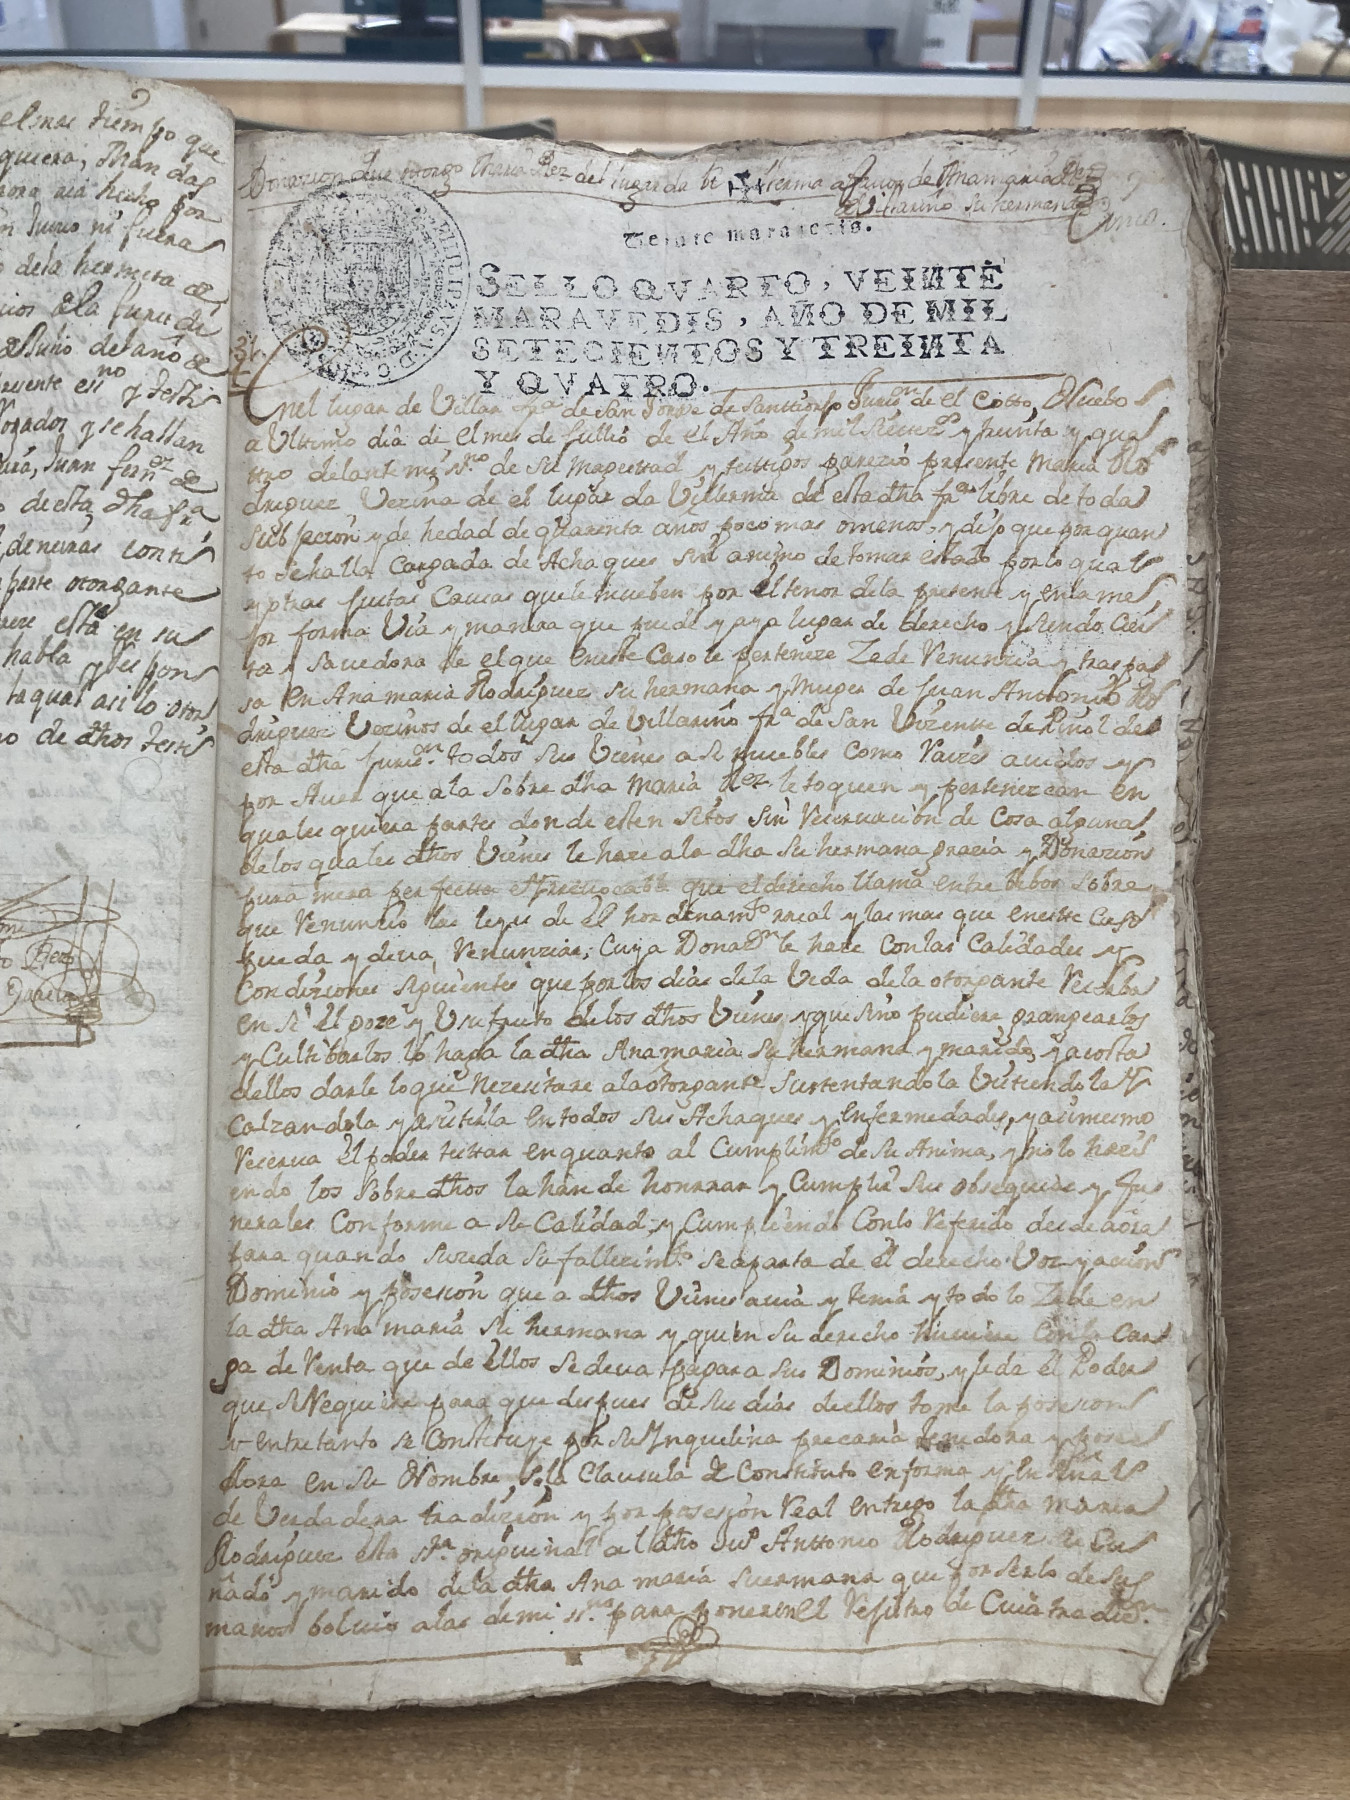 el mas tiempo que
quiera, Mandas
in Juicio ni fuera
de la hermita de
de Julio del año de
presente essno y testis
Vorador y se hallan
Juan fernz de
o de esta dha fra
de neiras conti
parte otorgante
esta en su
habla y le pon
la qual asi lo otor
no de dhos testis
Donazion que otorgo Maria Rez del lugar da Villerma a favor de Anamaria Rez
de Villarino su hermana
Veinte maravedis.
SELLO QVARTO, VEINTE
MARAVEDIS, AÑO DE MIL
SETECIENTOS Y TREINTA
Y QVATRO.
Enel lugar de Villar fra de san Jorge de Santtiorxo Jurisn de el Cotto Nuebo
a Ultimo dia de el mes de Jullio de el Año de mil Settezs y treinta y qua
ttro delante mi ssno de su Magesttad y testtigos parezio presente Maria Ro
driguez Vezina de el lugar da Villerma de esta dha fra libre de toda
Subjecion y de hedad de quarenta años poco mas omenos, y dijo que por quan
to se halla Cargada de Achaques sin animo de tomar estado por lo qual
y otras Justas Causas que le mueben por el tenor dela presente y en la me
jor forma Via y manera que puede y aya lugar de derecho y siendo Cier
ta y Savedora de el que eneste Caso le perteneze Zede Renunzia y traspa
sa en Ana maria Rodriguez su hermana y Muger de Juan Anttonio Ro
driguez Vezinos de el lugar de Villarino fra de San Vizente de Piñol de
esta dha Jurisn todos sus Vienes a si muebles Como Raizes avidos y
por aver que ala Sobre dha Maria Rez le toquen y pertenezcan en
quales quiera partes donde esten sitos sin Reservacion de Cosa alguna
delos quales dhos Vienes le haze ala dha su hermana grazia y Donazion
pura mera perfectta eYrrevocable que el derecho llama entre bibos Sobre
que Renunzio las leyes de El hordenamto rreal y las mas que eneste Caso
pueda y deva Renunziar, Cuya Donaon le haze Con las Calidades y
Condiziones siguientes que por los dias de la Vida de la otorgante Reserba
en si el goze y Usufruto delos dhos Vienes y que sino pudiere grangearlos
y Cultibarlos lo haga la dha Ana maria su hermana y marido, y a costa
dellos darle lo que Nezesitare ala otorgante Sustentandola Vistiendola y
Calzandola y asistirla en todos sus Achaques y enfermedades, y asimesmo
Reserva el poder testtar en quanto al Cumplimto de su Anima, y no lo hazi
endo los Sobre dhos la han de honrrar y Cumplir sus obsequios y fu
nerales Conforme a su Calidad, y Cumpliendo Con lo Referido desde aora
para quando suzeda su fallezimto se aparta de el derecho Voz y azion
Dominio y posesion que a dhos Vienes avia y tenia y todo lo Zede en
la dha Ana maria su hermana y quien su derecho huviere Con la Car
ga de Renta que de ellos se deva pagar a sus Dominios, y le da el Poder
que se Requiere para que despues de sus dias dellos tome la posesion
y entretanto se Constituye por su Ynquilina precaria tenedora y posee
dora en su Nombre, so la Clausula de Constituto en forma y en señal
de Verdadera tradizion y por posesion Real entrego la dha maria
Rodriguez esta ssra original al dho Jun Anttonio Rodriguez su Cu
ñado y marido dela dha Ana maria su ermana que por serlo de sus
manos bolvio alas de mi ssno para poner en el Rexistro de Cuia tradizn